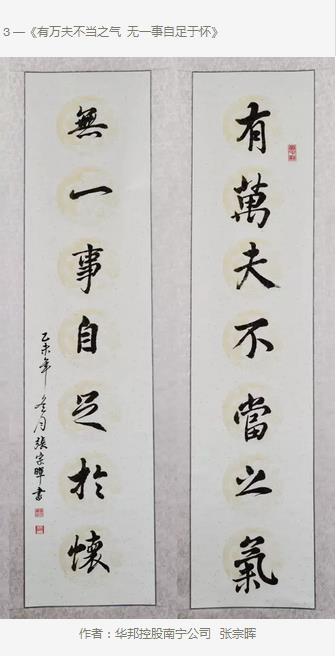 3 —《有万夫不当之气 无一事自足于怀》
有萬夫不當之氣
無一事自足於懷
乙未年冬月張宗暉書
作者：华邦控股南宁公司 张宗晖